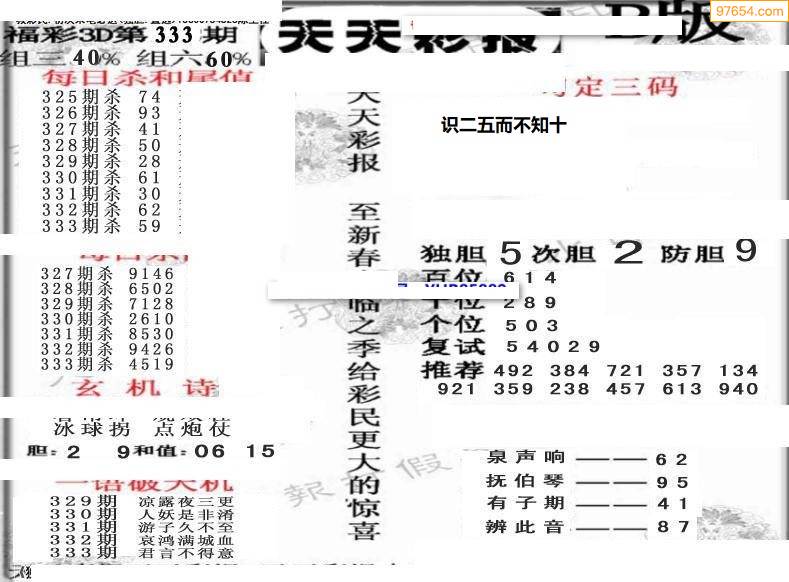 97654.com
福彩3D第 333 期
【天天彩报】
B版
组三40% 组六60%
每日杀和尾值
325期杀 74
326期杀 93
327期杀 41
328期杀 50
329期杀 28
330期杀 61
331期杀 30
332期杀 62
333期杀 59
327期杀 9146
328期杀 6502
329期杀 7128
330期杀 2610
331期杀 8530
332期杀 9426
333期杀 4519
玄机诗
冰球拐 点炮仗
胆:2 9和值:06 15
一语破天机
329期 凉露夜三更
330期 人妖是非淆
331期 游子久不至
332期 哀鸿满城血
333期 君言不得意
天天彩报 至新春 临之季给彩民更大的惊喜
定三码
识二五而不知十
独胆 5 次胆 2 防胆 9
百位 614
十位 289
个位 503
复试 54029
推荐 492 384 721 357 134
921 359 238 457 613 940
泉声响——62
抚伯琴——95
有子期——41
辨此音——87